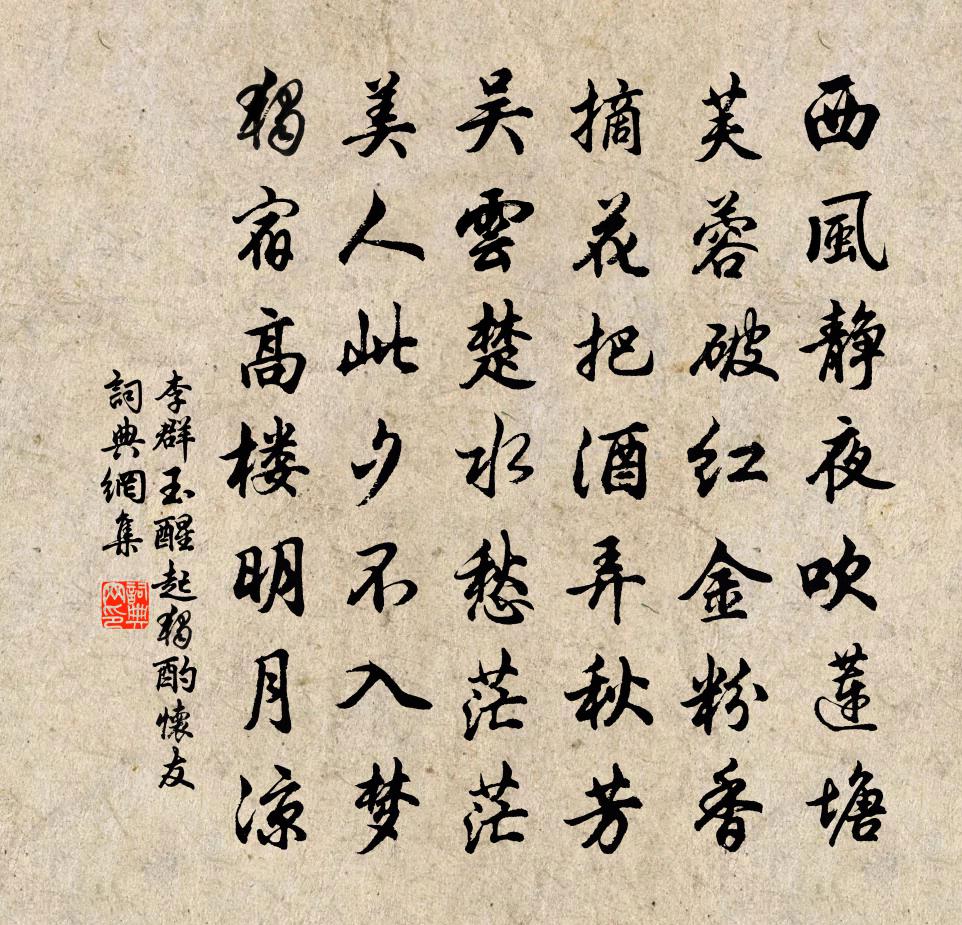 西風静夜吹蓮塘
芙蓉破红金粉香
摘花把酒弄秋芳
吴雲楚水愁茫茫
美人此夕不入梦
獨宿高楼明月凉
李群玉醒起獨酌懷友
詞典網集
詞典网印